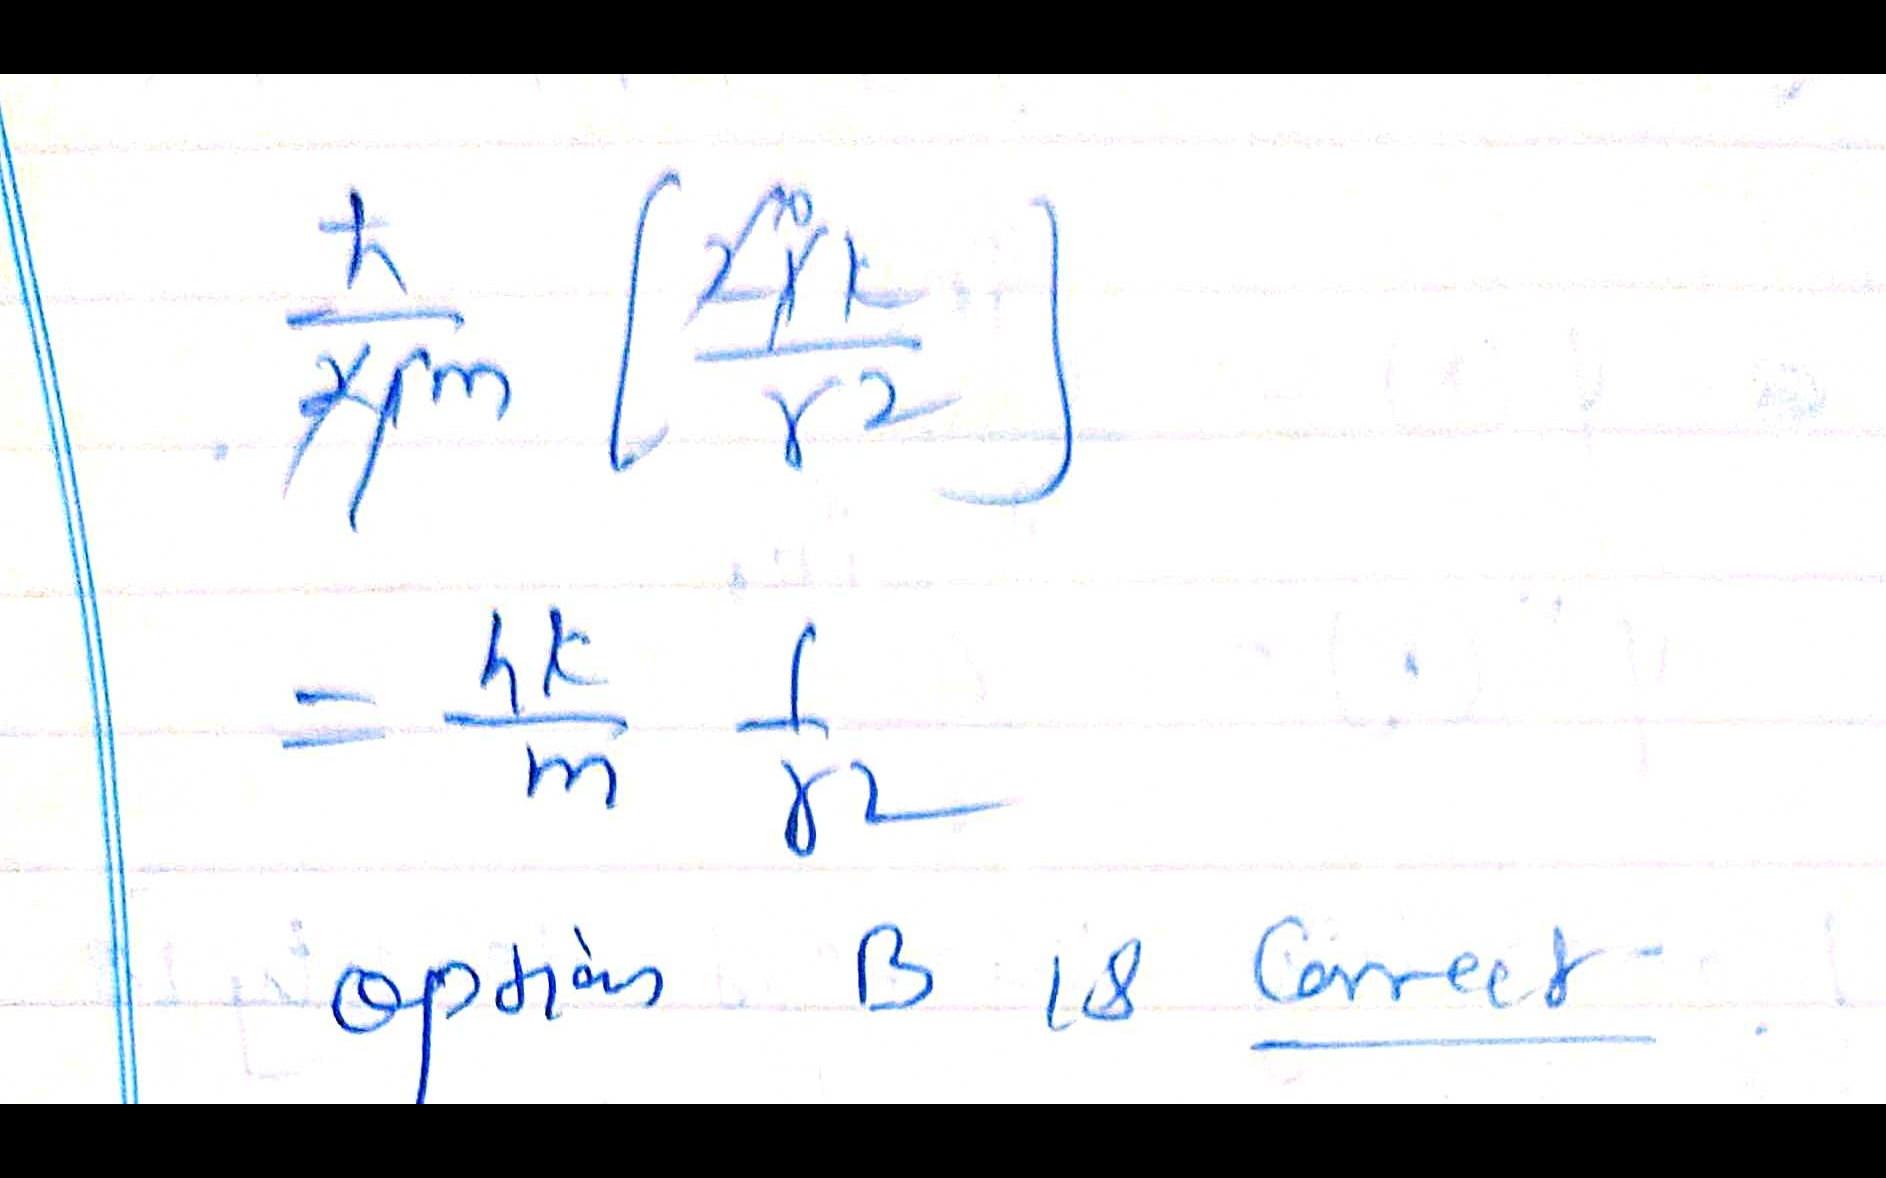 ħ/2im [2ik/r2]
= ħk/m 1/r2
option B is Correct